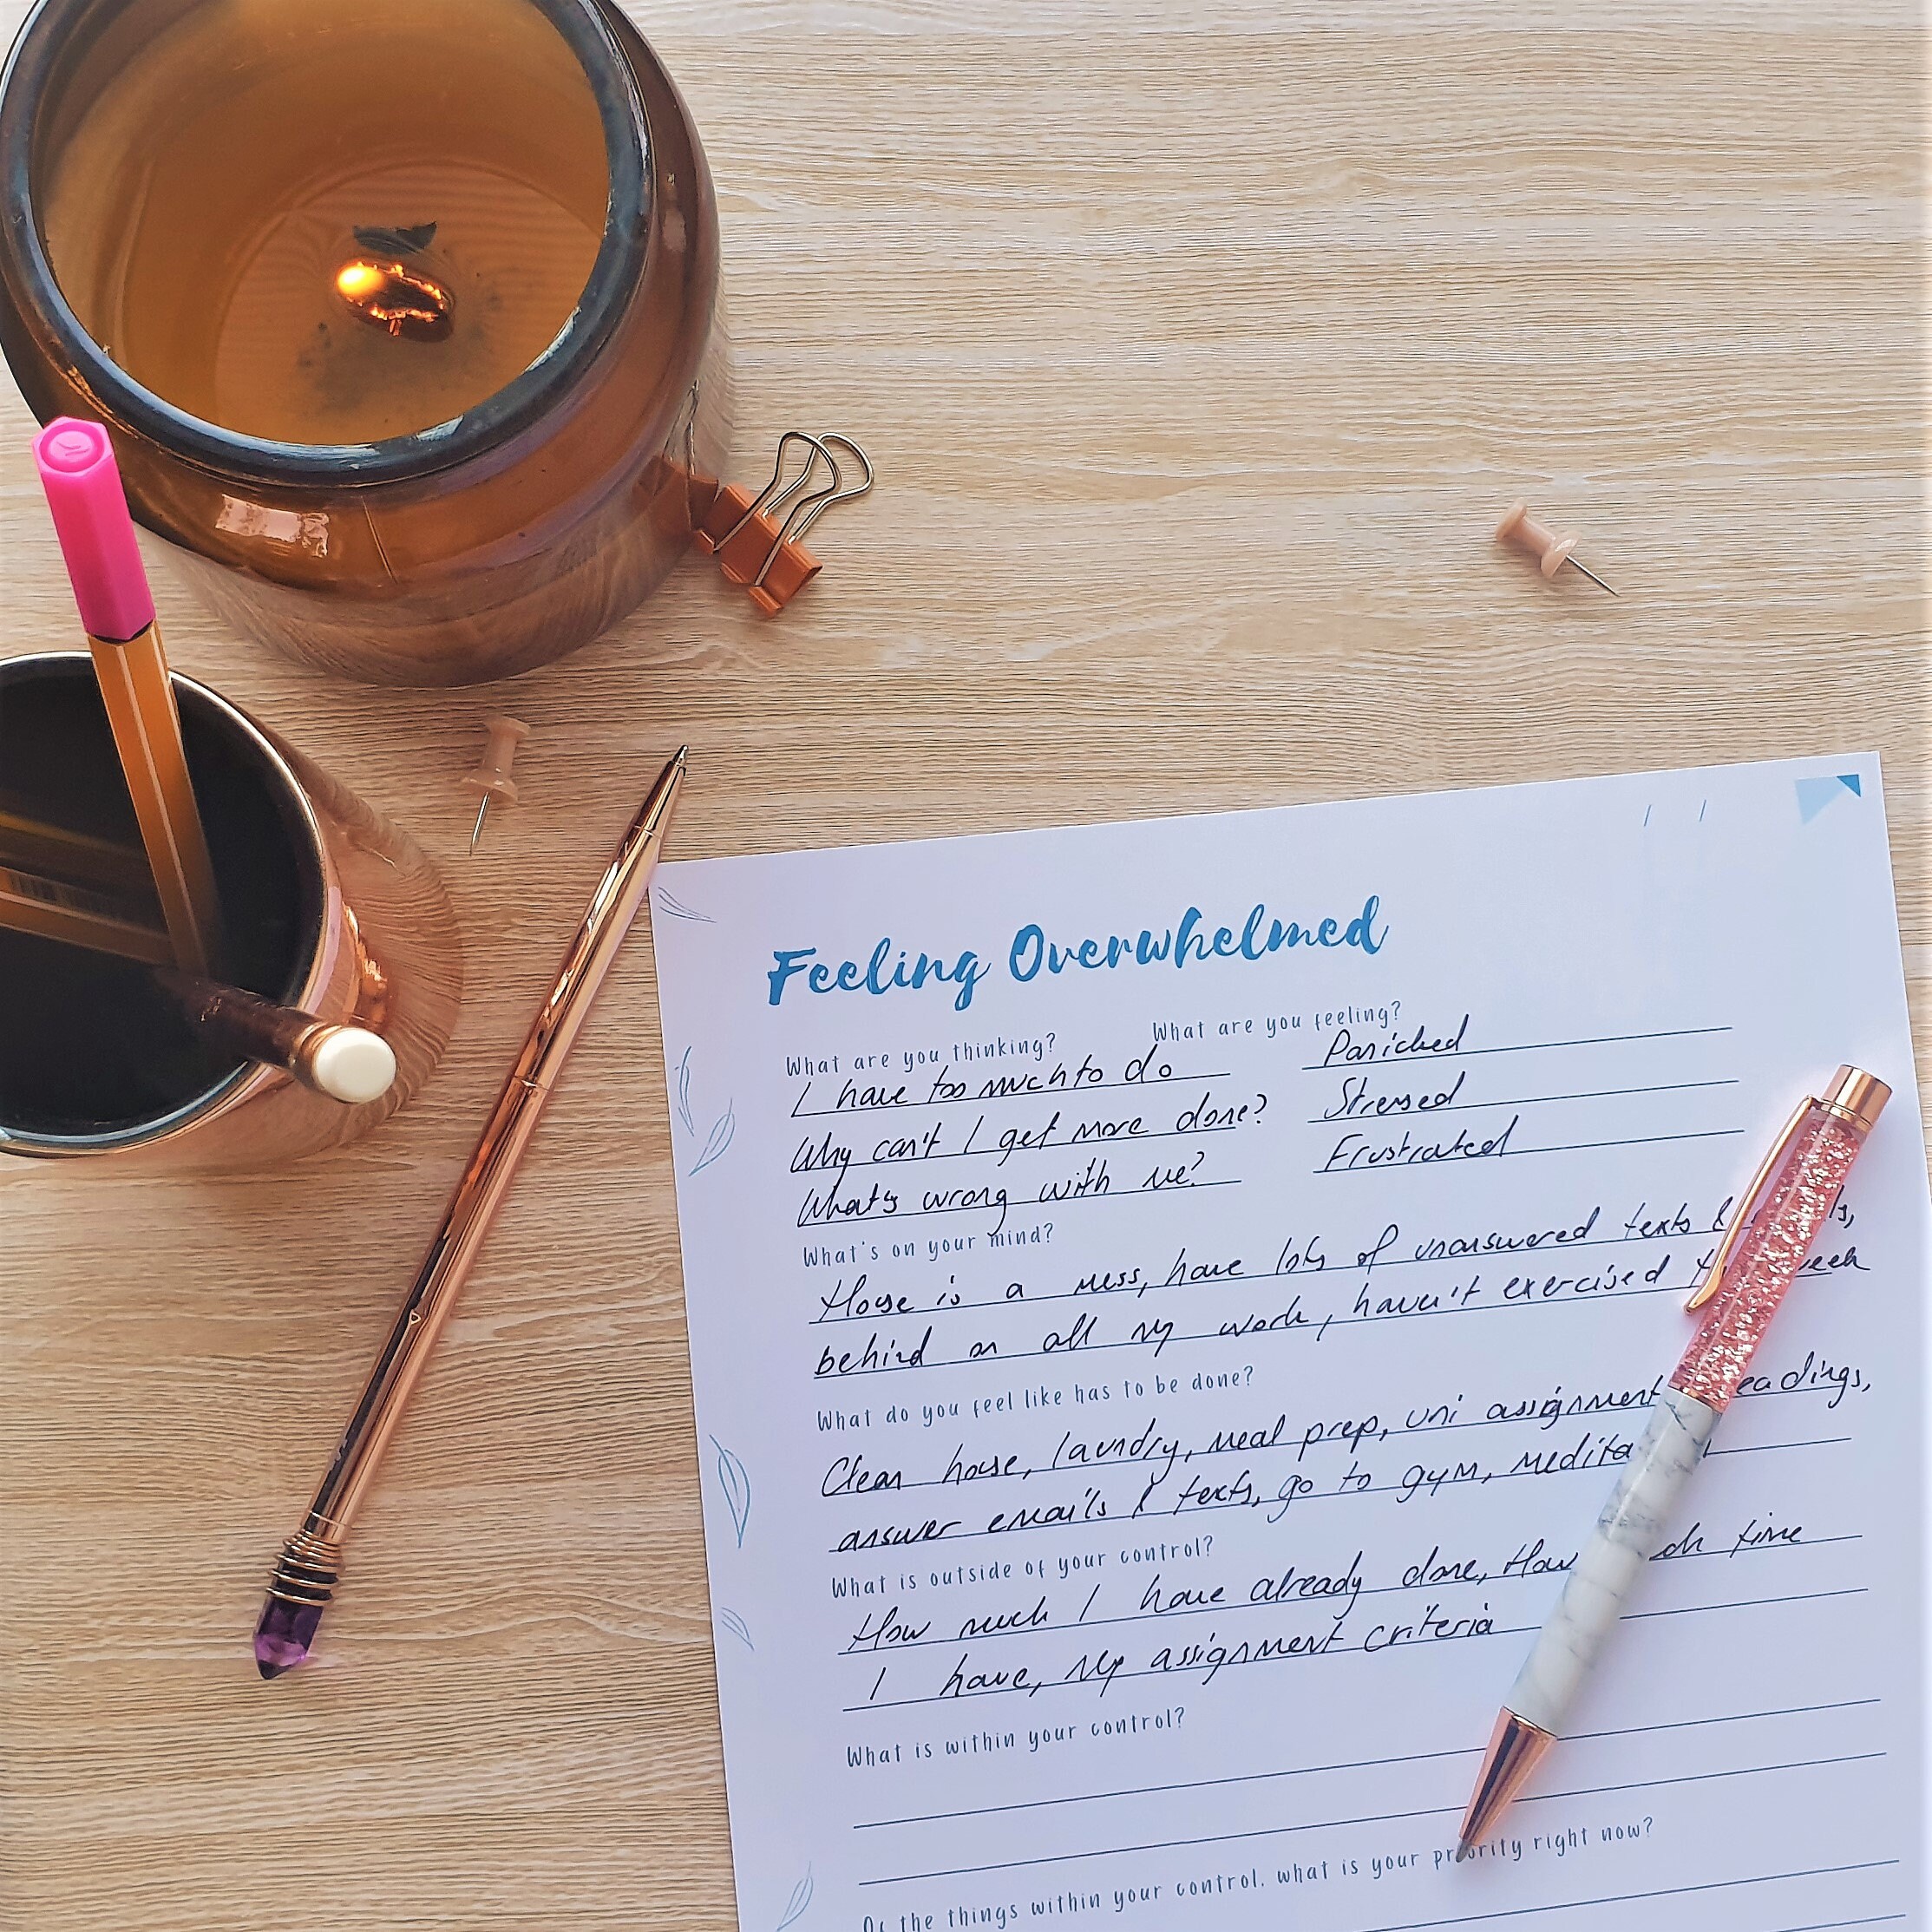 Feeling Overwhelmed
What are you thinking?
What are you feeling?
I have too much to do
Panicked
Why can't I get more done?
Stressed
What's wrong with me?
Frustrated
What's on your mind?
House is a mess, have lots of unanswered texts &
behind on all my work, haven't exercised week
What do you feel like has to be done?
Clean house, laundry, meal prep, uni assignment
answer emails & texts, go to gym,
What is outside of your control?
How much I have already done, How time
I have, my assignment criteria
What is within your control?
the things within your control, what is your priority right now?